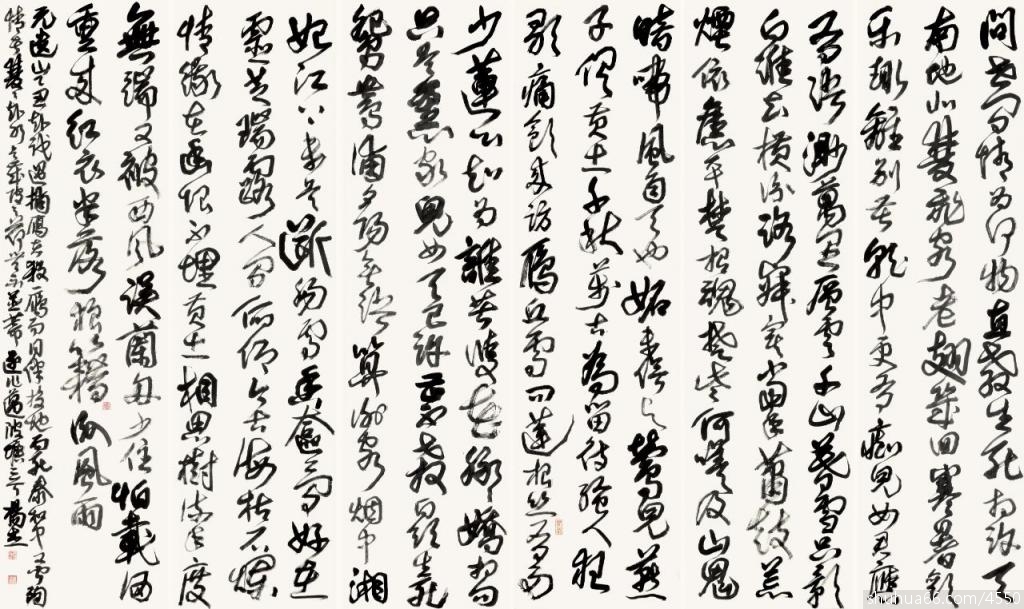 問世間情為何物直教生死相許天
南地北雙飛客老翅幾回寒暑歡
樂趣離別苦就中更有癡兒女君應
有語渺萬里層雲千山暮雪只影
向誰去橫汾路寂寞當年簫鼓荒
煙依舊平楚招魂楚些何嗟及山鬼
暗啼風雨天也妒未信與鶯兒燕
子俱黃土千秋萬古為留待騷人狂
歌痛飲來訪雁丘處問蓮根絲有多
少蓮心知為誰苦雙花脈脈嬌相向
只是舊家兒女天已許甚不教白頭生死
鴛鴦浦夕陽無語算謝客烟中湘
妃江上未是斷腸處香奩夢好在
靈芝瑞露人間俯仰今古海枯石爛
情緣在幽恨不埋黃土相思樹流年度
無端又被西風誤蘭舟少住怕載酒
重來紅衣半落狼藉臥風雨
元遺山
shuhua66.com/4550